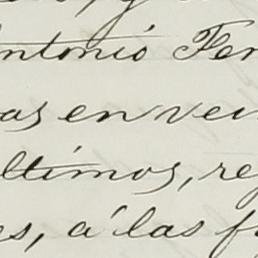 ntonio Fer
as en vei
ltimos, re
es, á las f